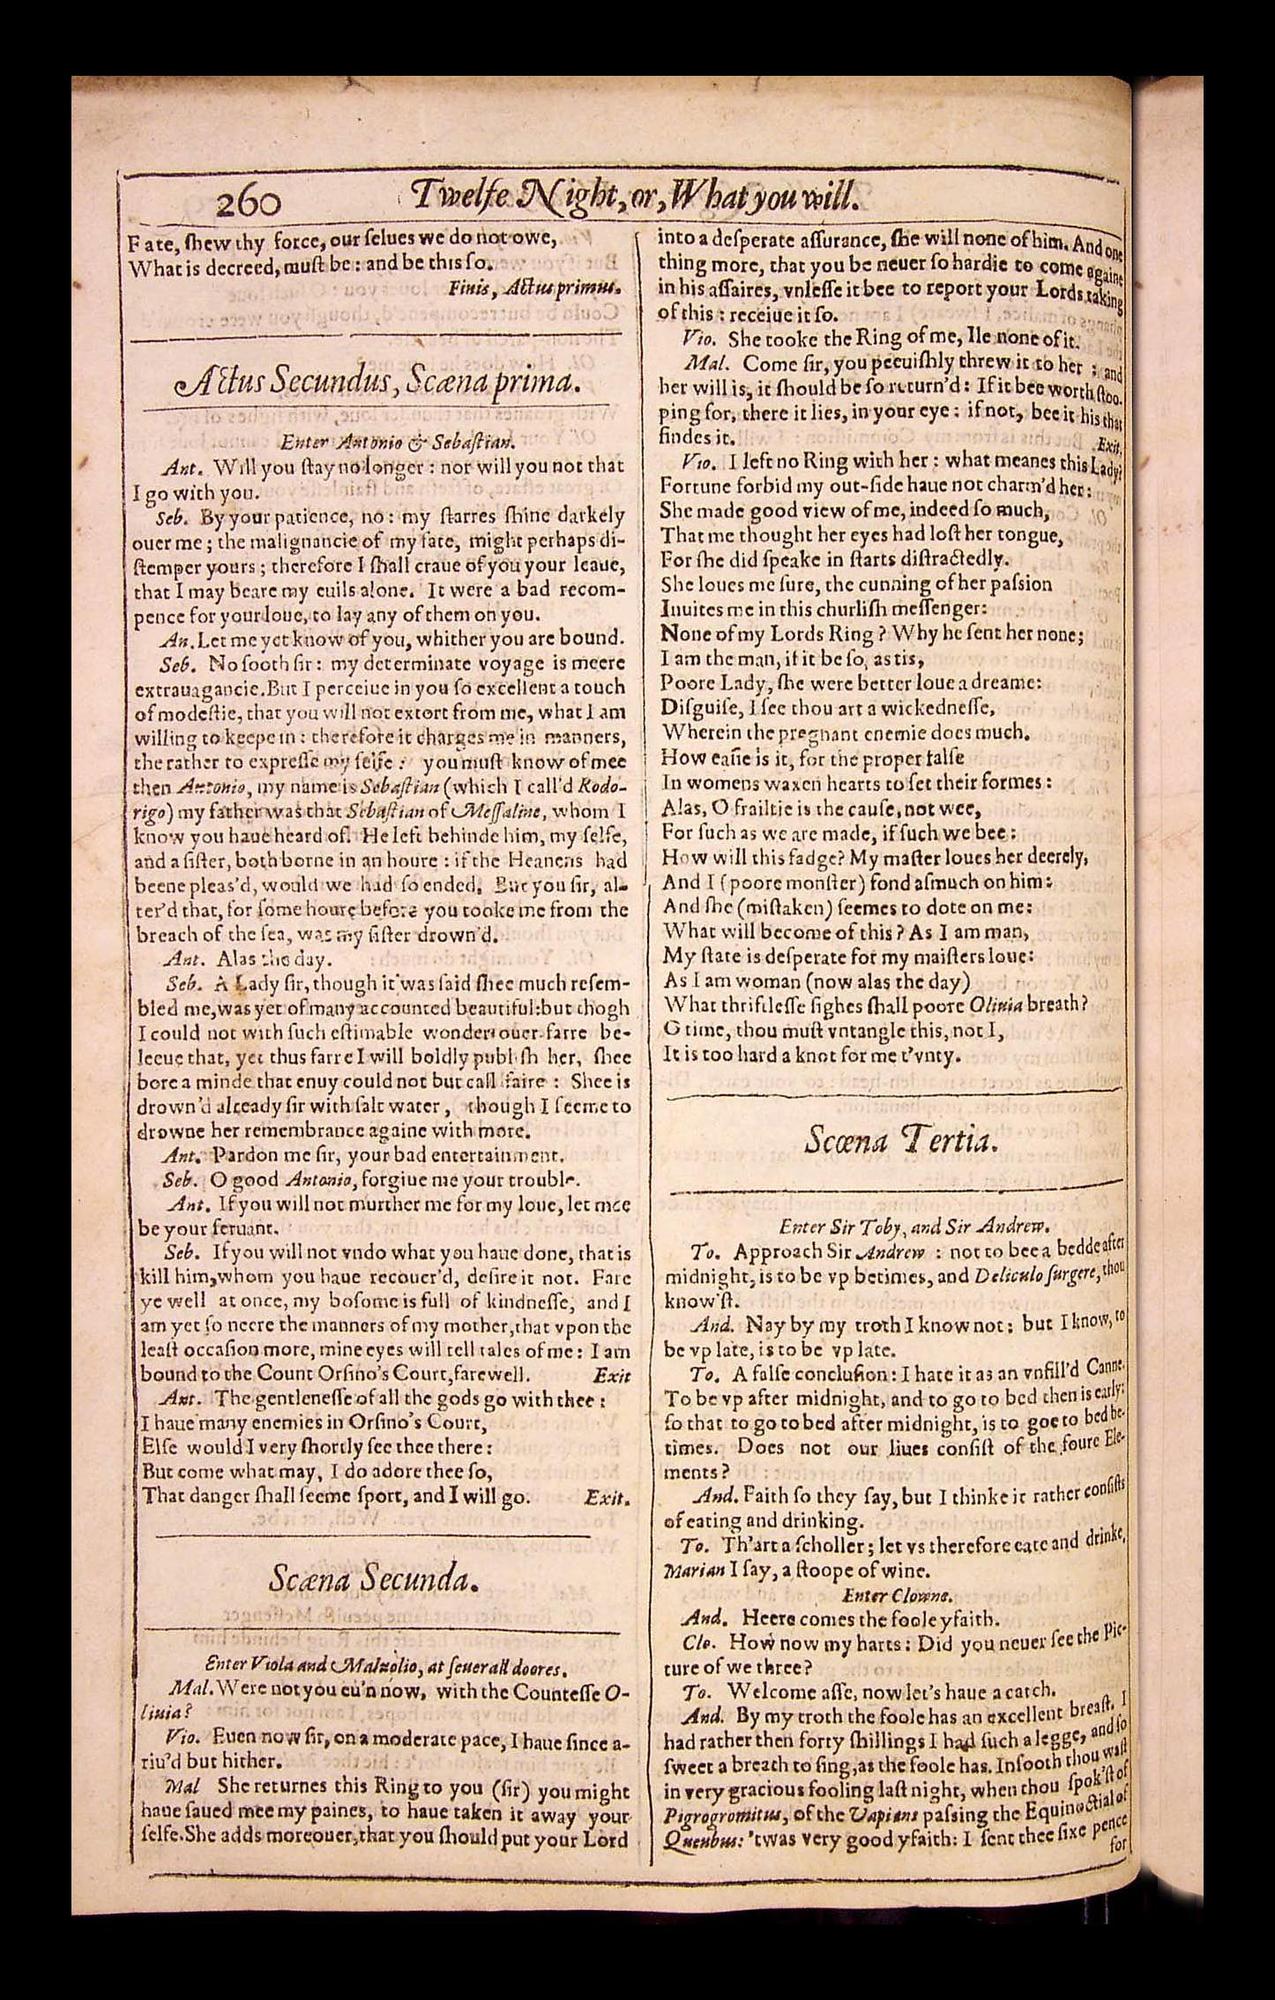 260
Twelfe Night, or, What you will.
Fate, ſhew thy force, our ſelues we do not owe,
What is decreed, muſt be: and be this ſo.
Finis, Actus primus.
Actus Secundus, Scæna prima.
Enter Antonio & Sebaſtian.
Ant. Will you ſtay no longer: nor will you not that
I go with you.
Seb. By your patience, no: my ſtarres ſhine darkely
ouer me; the malignancie of my fate, might perhaps di-
ſtemper yours; therefore I ſhall craue of you your leaue,
that I may beare my euils alone. It were a bad recom-
pence for your loue, to lay any of them on you.
An. Let me yet know of you, whither you are bound.
Seb. No ſooth ſir: my determinate voyage is meere
extrauagancie. But I perceiue in you ſo excellent a touch
of modeſtie, that you will not extort from me, what I am
willing to keepe in: therefore it charges me in manners,
the rather to expreſſe my ſelfe: you muſt know of mee
then Antonio, my name is Sebaſtian (which I call'd Rodo-
rigo) my father was that Sebaſtian of Meſſaline, whom I
know you haue heard of. He left behinde him, my ſelfe,
and a ſiſter, both borne in an houre: if the Heanens had
beene pleas'd, would we had ſo ended. But you ſir, al-
ter'd that, for ſome houre before you tooke me from the
breach of the ſea, was my ſiſter drown'd.
Ant. Alas the day.
Seb. A Lady ſir, though it was ſaid ſhee much reſem-
bled me, was yet of many accounted beautiful: but thogh
I could not with ſuch eſtimable wonder ouer-farre be-
leeue that, yet thus farre I will boldly publiſh her, ſhee
bore a minde that enuy could not but call faire: Shee is
drown'd already ſir with ſalt water, though I ſeeme to
drowne her remembrance againe with more.
Ant. Pardon me ſir, your bad entertainment.
Seb. O good Antonio, forgiue me your trouble.
Ant. If you will not murther me for my loue, let mee
be your ſeruant.
Seb. If you will not vndo what you haue done, that is
kill him, whom you haue recouer'd, deſire it not. Fare
ye well at once, my boſome is full of kindneſſe, and I
am yet ſo neere the manners of my mother, that vpon the
leaſt occaſion more, mine eyes will tell tales of me: I am
bound to the Count Orſino's Court, farewell. Exit
Ant. The gentleneſſe of all the gods go with thee:
I haue many enemies in Orſino's Court,
Elſe would I very ſhortly ſee thee there:
But come what may, I do adore thee ſo,
That danger ſhall ſeeme ſport, and I will go. Exit.
Scæna Secunda.
Enter Viola and Maluolio, at ſeuerall doores.
Mal. Were not you eu'n now, with the Counteſſe O-
liuia?
Vio. Euen now ſir, on a moderate pace, I haue ſince a-
riu'd but hither.
Mal She returnes this Ring to you (ſir) you might
haue ſaued mee my paines, to haue taken it away your
ſelfe. She adds moreouer, that you ſhould put your Lord
into a deſperate aſſurance, ſhe will none of him. And one
thing more, that you be neuer ſo hardie to come againe
in his affaires, vnleſſe it bee to report your Lords taking
of this: receiue it ſo.
Vio. She tooke the Ring of me, Ile none of it.
Mal. Come ſir, you peeuiſhly threw it to her: and
her will is, it ſhould be ſo return'd: If it bee worth ſtoo-
ping for, there it lies, in your eye: if not, bee it his that
findes it. Exit.
Vio. I left no Ring with her: what meanes this Lady?
Fortune forbid my out-ſide haue not charm'd her:
She made good view of me, indeed ſo much,
That me thought her eyes had loſt her tongue,
For ſhe did ſpeake in ſtarts diſtractedly.
She loues me ſure, the cunning of her paſsion
Inuites me in this churliſh meſſenger:
None of my Lords Ring? Why he ſent her none;
I am the man, if it be ſo, as tis,
Poore Lady, ſhe were better loue a dreame:
Diſguiſe, I ſee thou art a wickedneſſe,
Wherein the pregnant enemie does much.
How eaſie is it, for the proper falſe
In womens waxen hearts to ſet their formes:
Alas, O frailtie is the cauſe, not wee,
For ſuch as we are made, if ſuch we bee:
How will this fadge? My maſter loues her deerely,
And I (poore monſter) fond aſmuch on him:
And ſhe (miſtaken) ſeemes to dote on me:
What will become of this? As I am man,
My ſtate is deſperate for my maiſters loue:
As I am woman (now alas the day)
What thriftleſſe ſighes ſhall poore Oliuia breath?
O time, thou muſt vntangle this, not I,
It is too hard a knot for me t'vnty.
Scœna Tertia.
Enter Sir Toby, and Sir Andrew.
To. Approach Sir Andrew: not to bee a bedde after
midnight, is to be vp betimes, and Deliculo ſurgere, thou
know'ſt.
And. Nay by my troth I know not: but I know, to
be vp late, is to be vp late.
To. A falſe concluſion: I hate it as an vnfill'd Canne.
To be vp after midnight, and to go to bed then is early:
ſo that to go to bed after midnight, is to goe to bed be-
times. Does not our liues conſiſt of the foure Ele-
ments?
And. Faith ſo they ſay, but I thinke it rather conſiſts
of eating and drinking.
To. Th'art a ſcholler; let vs therefore eate and drinke,
Marian I ſay, a ſtoope of wine.
Enter Clowne.
And. Heere comes the foole yfaith.
Clo. How now my harts: Did you neuer ſee the Pic-
ture of we three?
To. Welcome aſſe, now let's haue a catch.
And. By my troth the foole has an excellent breaſt. I
had rather then forty ſhillings I had ſuch a legge, and ſo
ſweet a breath to ſing, as the foole has. Inſooth thou waſt
in very gracious fooling laſt night, when thou ſpok'ſt of
Pigrogromitus, of the Vapians paſsing the Equinoctial of
Queubus: 'twas very good yfaith: I ſent thee ſixe pence
for